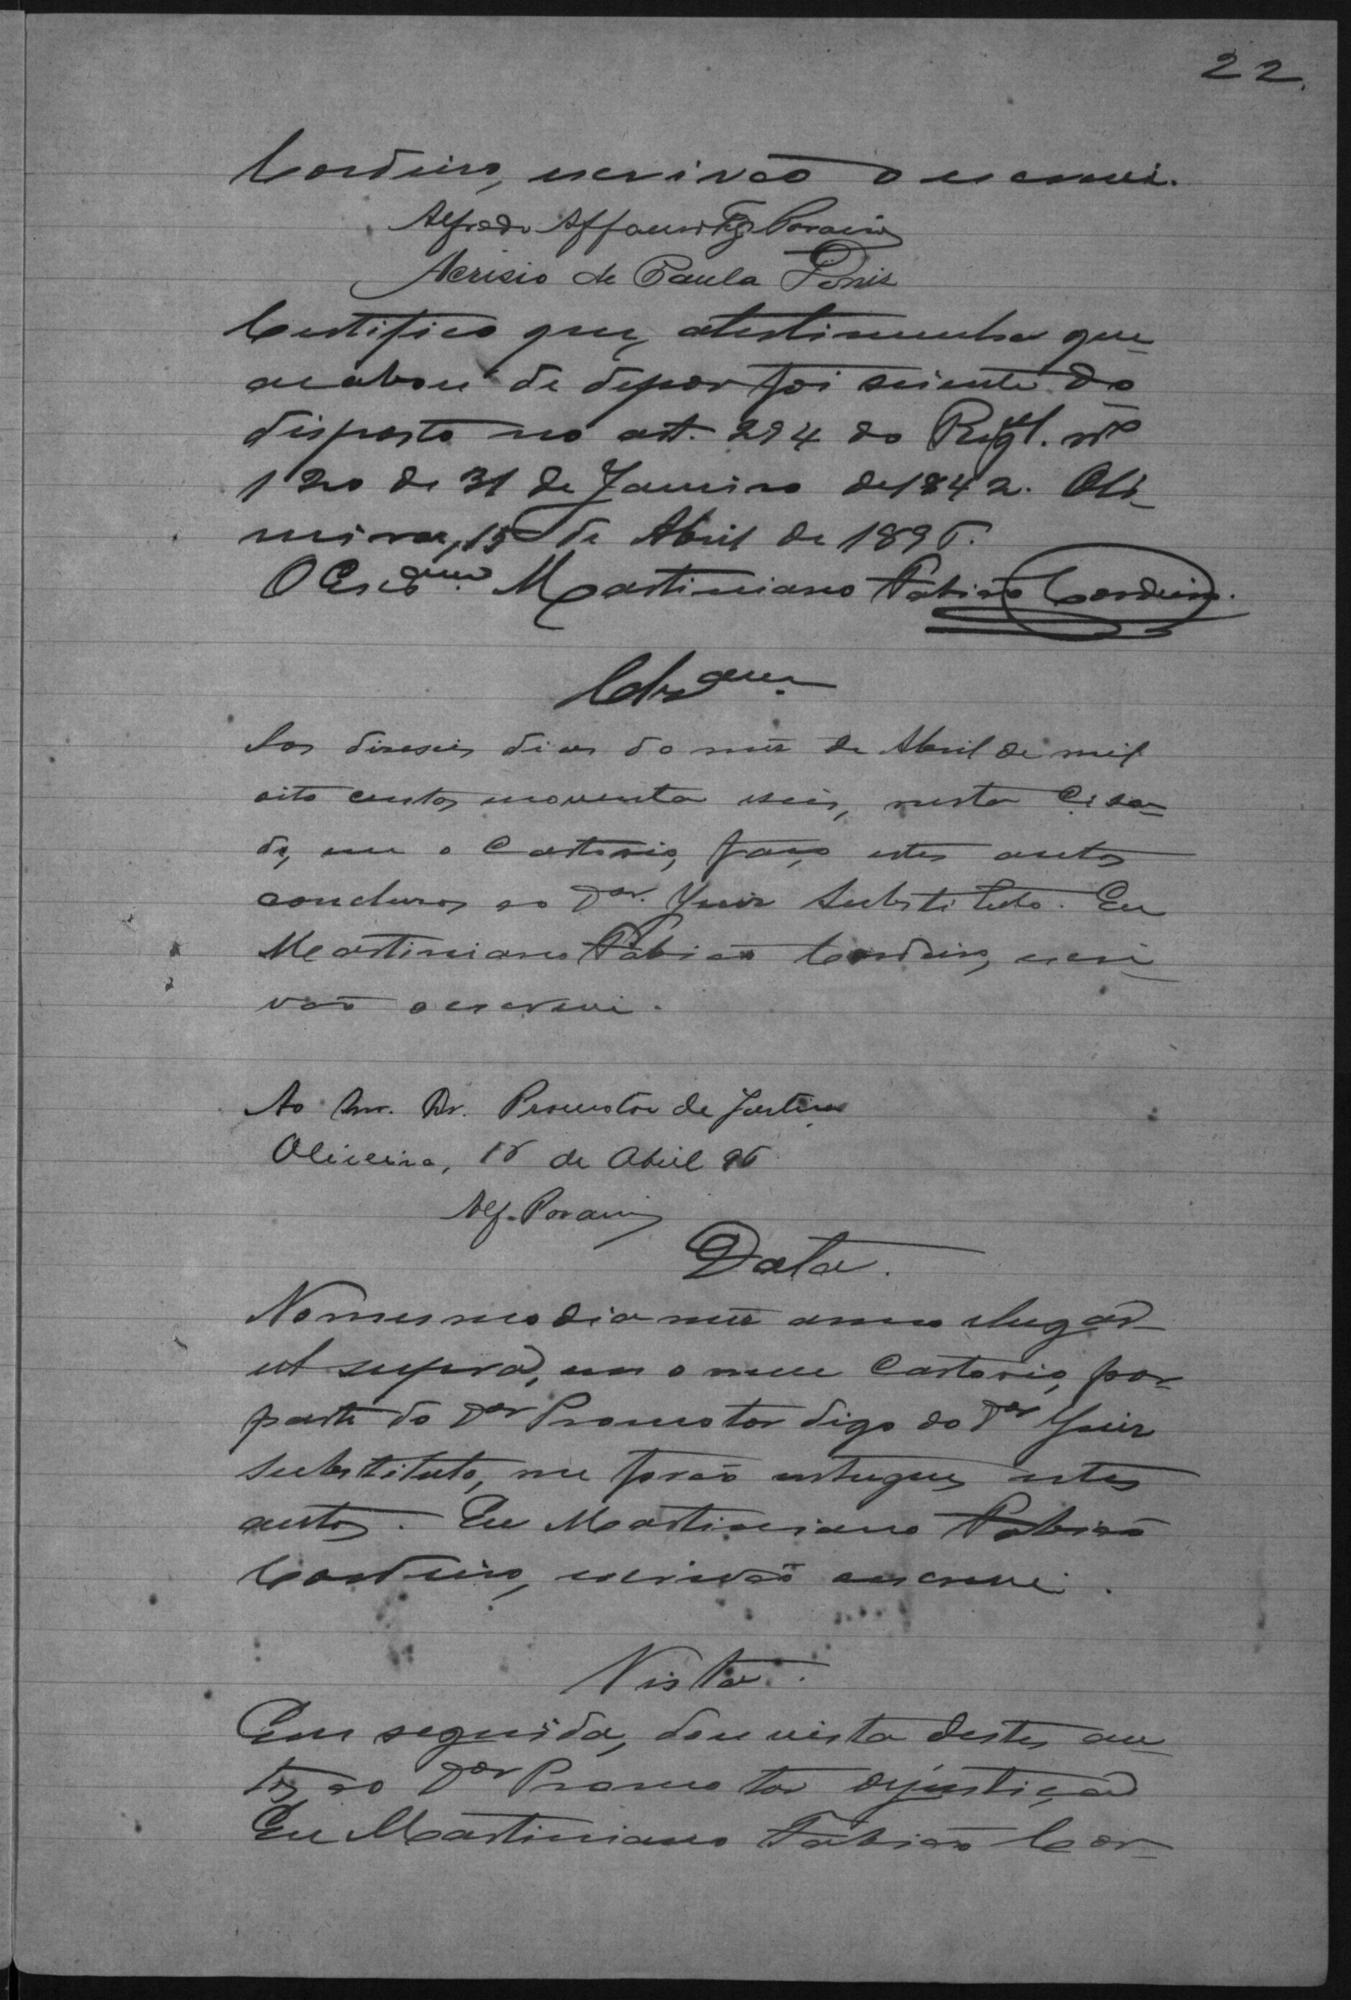 22.
Cordeiro, escrivão o escrevi.
Alfredo Affonso Paraiso
Acrisio de Paula Diniz
Certifico que, atestimunha que
acabou de depor foi sciente do
disposto no art. 294 do Regl. nº
120 de 31 de Janeiro de 1842. Oli-
veira, 15 de Abril de 1896.
O Escram Martiniano Fabião Cordeiro.
Clsam.
Aos diseseis dias do mez de Abril de mil
oito centos noventa eseis, nesta Cida-
de, em o Cartorio, faço estes autos
conclusos ao Dor. Juiz Substituto. Eu
Martiniano Fabião Cordeiro, escri-
vão o escrevi.
Ao Snr. Dr. Promotor de Justiça
Oliveira, 16 de Abril 96
Alf.
Data.
No mesmo dia mez anno elugar
ut supra, em o meu Cartorio, por
parte do Dor Promotor digo do Dor Juiz
Substituto, me forão entregues estes
autos. Eu Martiniano Fabião
Cordeiro, escrivão oescrevi.
Vista.
Em seguida, dou vista destes au-
tos ao Dor Promotor dejustiça
Eu Martiniano Fabião Cor-